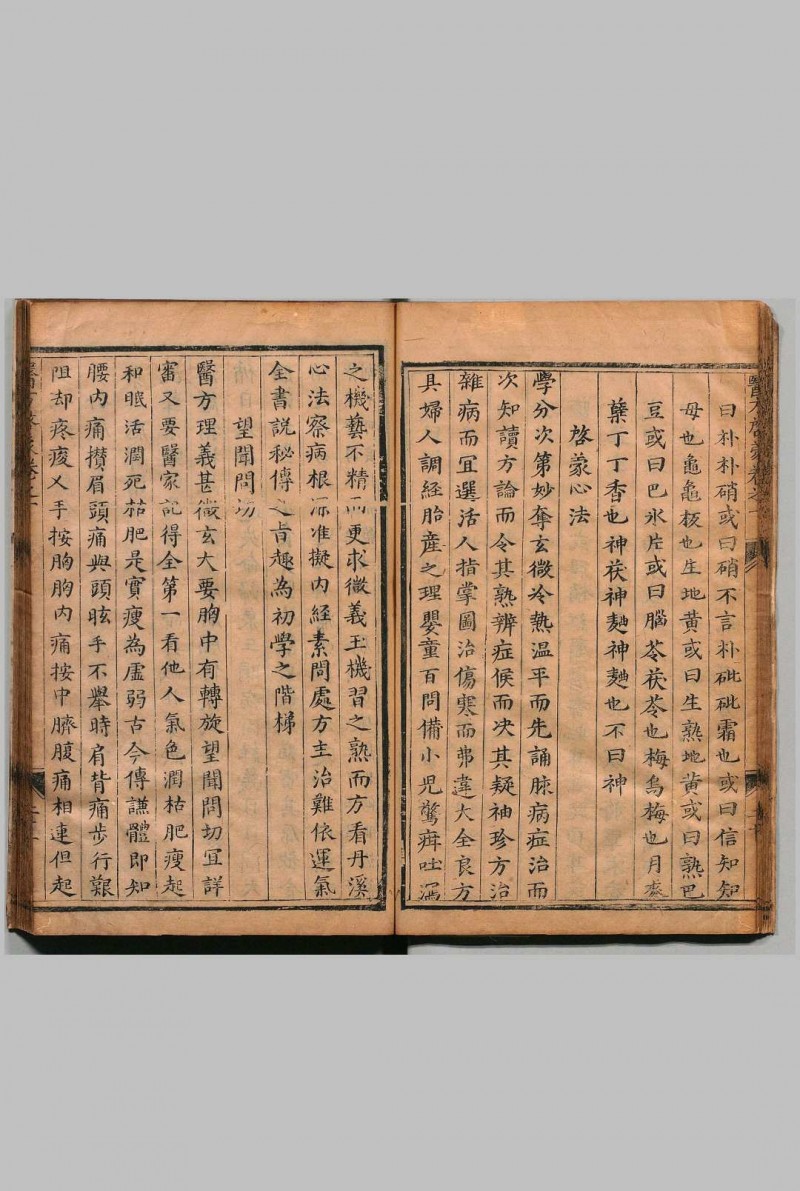 曰朴朴硝或曰硝不言朴砒砒霜也或曰信知知
母也龜龜板也生地黄或曰生熟地黄或曰熟巴
豆或曰巴氷片或曰腦苓茯苓也梅烏梅也月
蘖丁丁香也神茯神麯神麯也不曰神
啓蒙心法
學分次第妙奪玄微冷熱温平而先誦脉病症治而
次知讀方論而令其熟辨症候而决其疑袖珍方治
雜病而冝選活人指掌圖治傷寒而弗違大全良方
具婦人調經胎産之理嬰童百問備小児驚疳吐瀉
之機藝不精而更求微義玉機習之熟而方看丹溪
心法察病根源准擬内経素問處方主治難依運氣
全書説秘傳之㫖趣為初學之階梯
望聞問切
醫方理義甚微玄大要胸中有轉旋望聞問切冝詳
審又要醫家記得全第一看他人氣色潤枯肥瘦起
和眠活潤死枯肥是實瘦為虛弱古今傳謙體即知
腰内痛攅眉頭痛與頭眩手不舉時肩背痛步行艱
阻却疼痠乂手按胸胸内痛按中臍腹痛相連但起